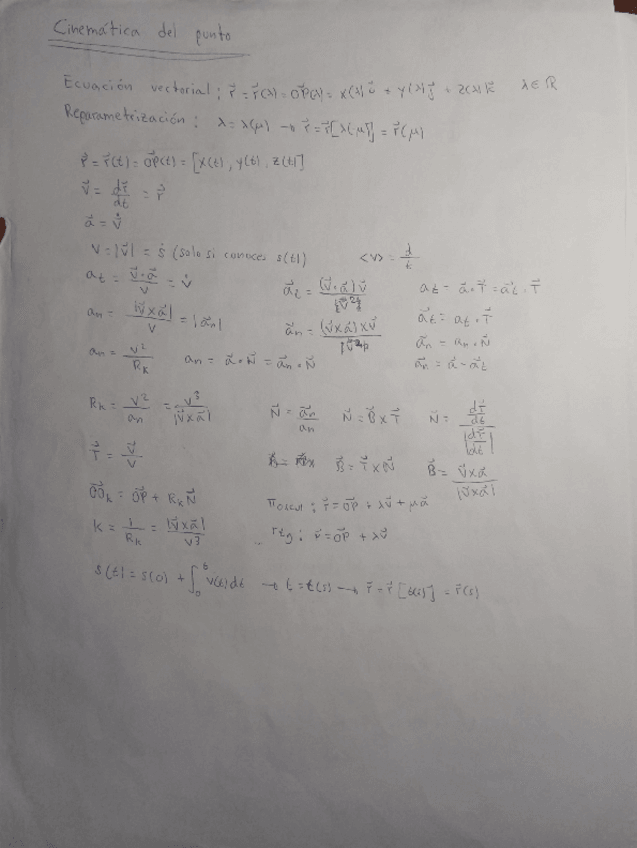 Cinemática del punto
Ecuación vectorial: r⃗ = r⃗(λ) = OP⃗(λ) = x(λ)i⃗ + y(λ)j⃗ + z(λ)k⃗ λ∈ℝ
Reparametrización: λ = λ(μ) → r⃗ = r⃗[λ(μ)] = r⃗(μ)
r⃗ = r⃗(t) = OP⃗(t) = [x(t), y(t), z(t)]
v⃗ = dr⃗/dt = ṙ⃗
a⃗ = v̇⃗
v = |v⃗| = ṡ (solo si conoces s(t)) <v> = d/t
a_t = (v⃗·a⃗)/v = v̇ a⃗_t = (v⃗·a⃗)v⃗/|v⃗²| a_t = a⃗·T⃗ = a⃗_t·T⃗
a_n = |v⃗×a⃗|/v = |a⃗_n| a⃗_n = (v⃗×a⃗)×v⃗/|v⃗²| a⃗_t = a_t·T⃗
a⃗_n = a_n·N⃗
a_n = v²/R_k a_n = a⃗·N⃗ = a⃗_n·N⃗ a⃗_n = a⃗ - a⃗_t
R_k = v²/a_n = v³/|v⃗×a⃗| N⃗ = a⃗_n/a_n N⃗ = B⃗×T⃗ N⃗ = (dT⃗/dt)/|dT⃗/dt|
T⃗ = v⃗/v B⃗ = T⃗×N⃗ B⃗ = v⃗×a⃗/|v⃗×a⃗|
OO⃗_k = OP⃗ + R_k N⃗ π_oscul: r⃗ = OP⃗ + λv⃗ + μa⃗
k = 1/R_k = |v⃗×a⃗|/v³ r_tg: r⃗ = OP⃗ + λv⃗
s(t) = s(0) + ∫₀ᵗ v(t)dt → t = t(s) → r⃗ = r⃗[t(s)] = r⃗(s)